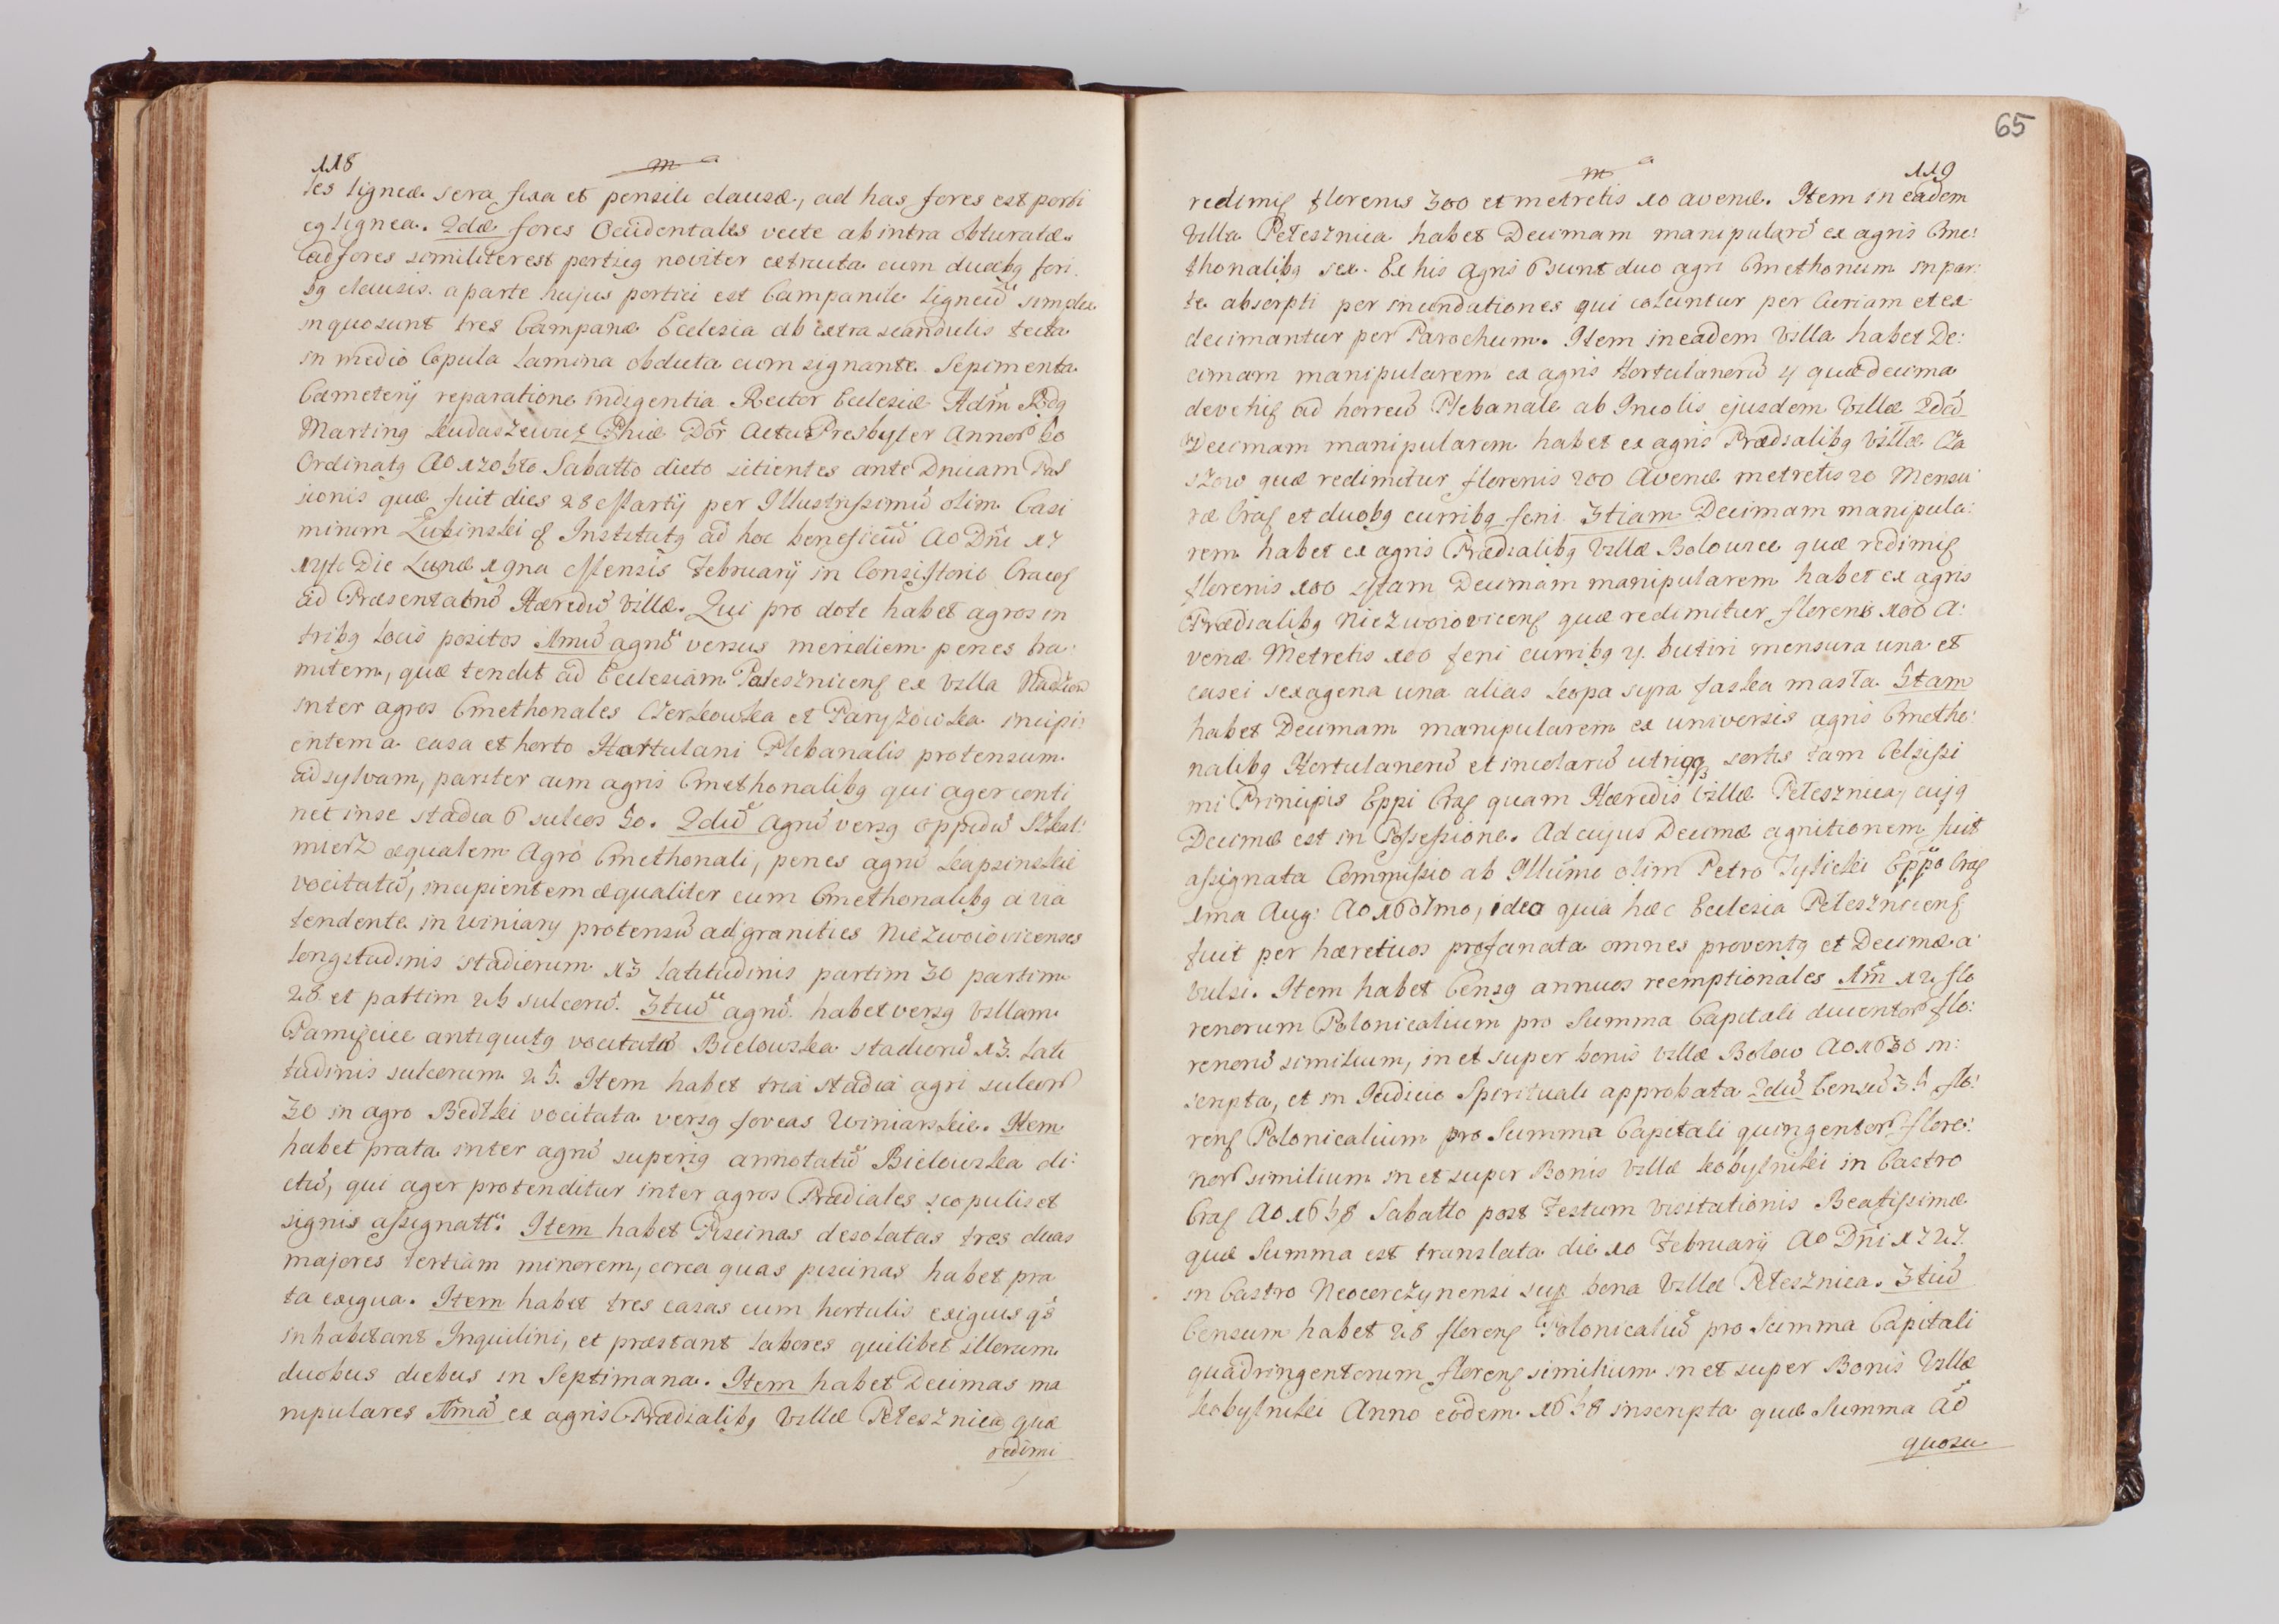 118
m a
res ligneæ sera fixa et pensili clausæ, ad has fores est porti
cq lignea. 2dæ fores Occidentales vecte ab intra obturatæ.
ad fores similiter est porticq noviter extructa cum duabq fori
bq clausis. a parte hujus portici est Campanile ligneũ simplex
in quo sunt tres Campanæ Ecclesia ab extra scandulis tecta
in medio Copula lamina obducta cum signante. Sepimenta
Cæmeterij reparatione indigentia Rector Ecclesiæ Adm̃ Rdq
Martinq Phiæ Dor̃ Actu Presbyter Annor 50
Ordinatq Ao Sabatto dicto sitientes ante Dnicam Pas
sionis quæ fuit dies 28 Martij per Illustrissimũ olim Casi
mirum Łubinski & Institutq ad hoc beneficiũ Ao Dñi 17
die Lunæ 19na Mensis Februarij in Consistorio Cracoẽ
ad Præsentatnẽ Hæredũ villæ. Qui pro dote habet agros in
tribq locis positos 1mũ agrũ versus meridiem penes tra:
mitem, quæ tendit ad Ecclesiam Pelesznicenẽ ex Villa
inter agros Cmethonales Czerkowska et Paryzowska incipi:
entem a casa et horto Hortulani Plebanalis protensum
ad sylvam, pariter cum agris Cmethonalibq qui ager conti
net in se stadia 6 sulcos 50. 2dũ agrũ versq oppidũ Szkal:
mierz æqualem Agro Cmethonali, penes agrũ
vocitatũ, incipientem æqualiter cum Cmethonalibq a via
tendente in Winiary protensũ ad granities Niezwoiovicenses
longitudinis stadiorum 13 latitudinis partim 30 partim
28 et partim 26 sulcorũ. 3tiũ agrũ habet versq Villam
antiquitq vocitatũ Bielowska stadiorũ 13. Lati
tudinis sulcorum 25. Item habet tria stadia agri sulcorũ
30 in agro Bedzki vocitata versq foveas Winiarskie. Item
habet prata inter agrũ superiq annotatũ Bielowska di:
ctũ, qui ager protenditur inter agros Prædiales scopulis et
signis assignatt. Item habet Piscinas desolatas tres duas
majores tertiam minorem, circa quas piscinas habet pra
ta exigua. Item habet tres casas cum hortulis exiguis qs
inhabitant Inquilini, et præstant labores quilibet illorum
duobus diebus in Septimana. Item habet Decimas ma
nipulares 1mã ex agris Prædialibq Villæ Pełesznica quæ
redimi
65
m a
119
redimiẽ florenis 300 et metretis 10 avenæ. Item in eadem
Villa Pełesznica habet Decimam manipularẽ ex agris Cme:
thonalibq sex. Ex his Agris 6 sunt duo agri Cmethonum in par:
te absorpti per inundationes qui coluntur per Curiam et ex
decimantur per Parochum. Item in eadem Villa habet De:
cimam manipularem ex agris Hortulanorũ 4 quæ decima
devehiẽ ad horreũ Plebanale ab Incolis ejusdem Villæ 2dã
Decimam manipularem habet ex agris Prædialibq Villæ Cza
szow quæ redimitur florenis 200 Avenæ metretis 20 Mensu
ræ Craẽ et duobq curribq feni 3tiam Decimam manipula:
rem habet ex agris Prædialibq Villæ Bolowice quæ redimiẽ
florenis 100 4tam Decimam manipularem habet ex agris
Prædialibq Niezwoiovicenẽ quæ redimitur florenis 100 a:
venæ Metretis 100 feni curribq 4. butiri mensura una et
casei sexagena una alias kopa syra faska masła. 5tam
habet Decimam manipularem ex universis agris Cmetho:
nalibq Hortulanorũ et incolarũ utriqq sortis tam Celsissi
mi Principis Eppi Craẽ quam Hæredis Villæ Pełesznica, cujq
Decimæ est in Possessione. Ad cujus Decimæ agnitionem fuit
assignata Commissio ab Illũmo olim Petro Tylicki Eppo Craẽ
1ma Aug: Ao ideo quia hæc Ecclesia Pełesznicenẽ
fuit per hæreticos profanata omnes proventq et Decimæ a
vulsi. Item habet Censq annuos reemptionales 1m̃ 12 flo
renorum Polonicalium pro Summa Capitali ducentorũ flo:
renorũ similium, in et super bonis Villæ Bolow Ao 1630 in:
scripta, et in Iudicio Spirituali approbata 2dũ Censũ 35 flo:
renẽ Polonicalium pro Summa Capitali quingentorũ flore:
norũ similium in et super Bonis Villæ Kobylniki in Castro
Craẽ Ao 1658 Sabatto post Festum Visitationis Beatissimæ
quæ Summa est translata die 10 Februarij Ao Dñi 1727.
in Castro Neocorczynensi sup bona Villæ Pełesznica. 3tiũ
Censum habet 28 florenẽ Polonicaliũ pro Summa Capitali
quadringentorum florenẽ similium in et super Bonis Villæ
Kobylniki Anno eodem 1658 inscripta quæ Summa Ad
quosu